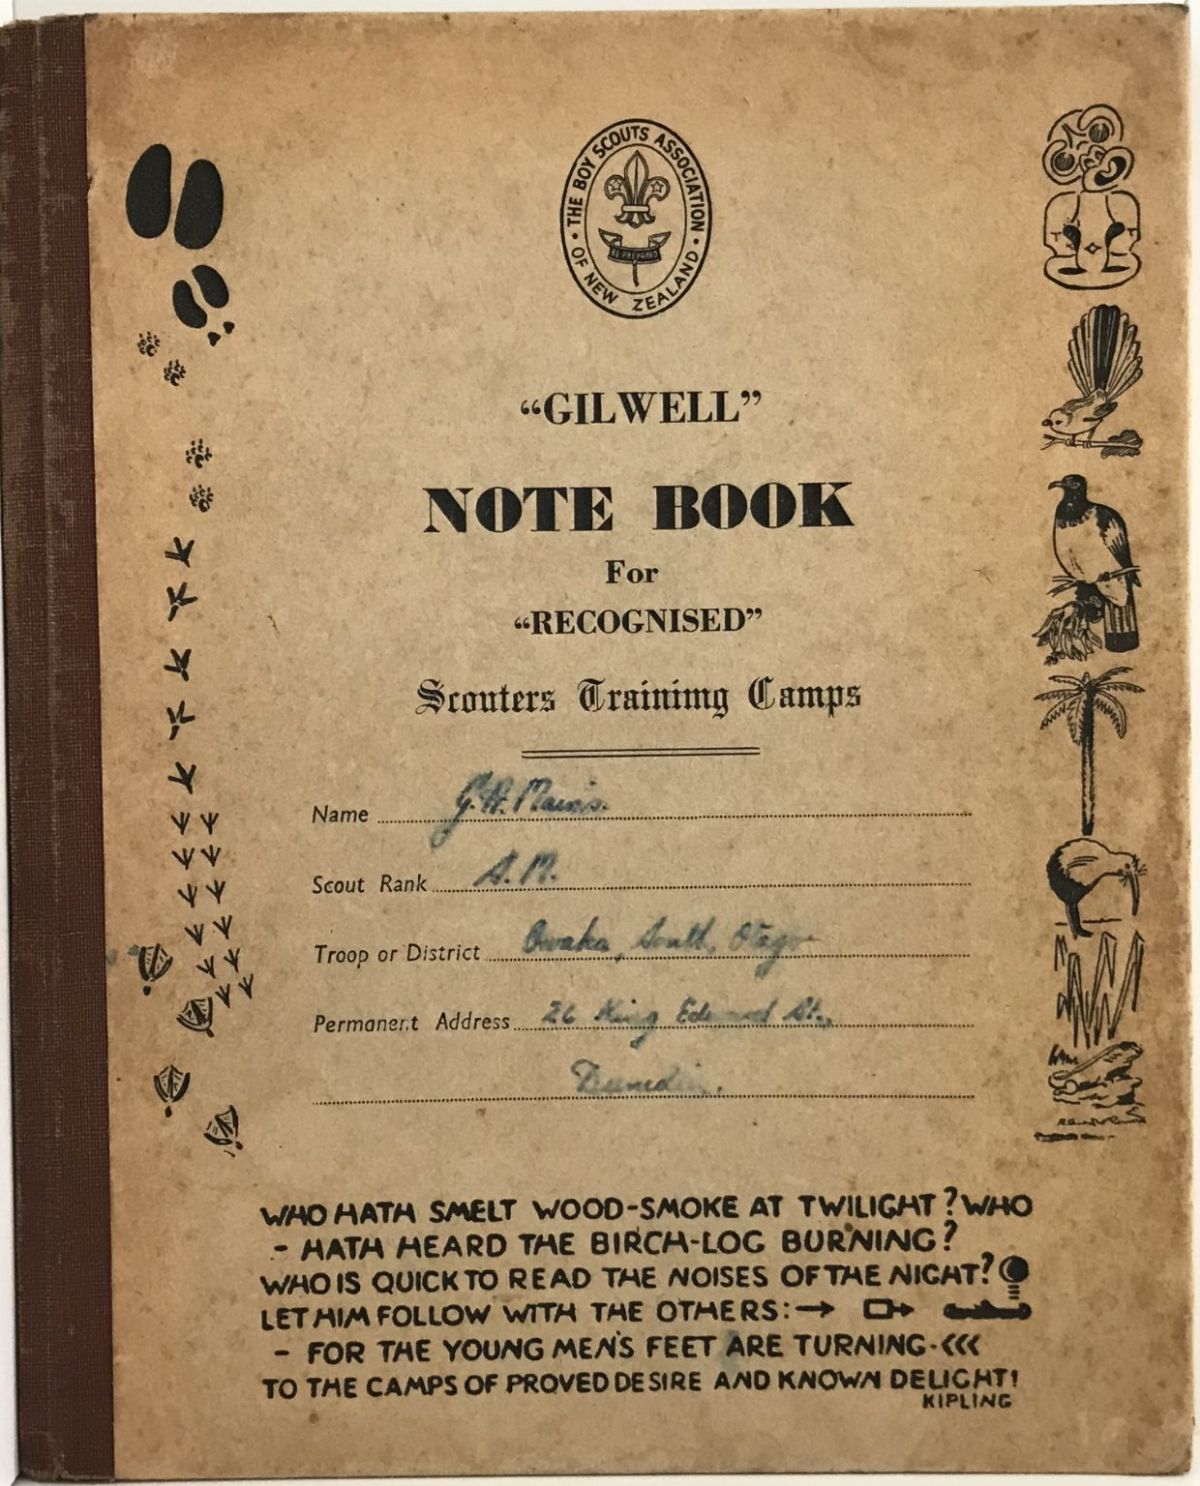 THE BOY SCOUTS ASSOCIATION
• OF NEW ZEALAND •
BE PREPARED
“GILWELL”
NOTE BOOK
For
“RECOGNISED”
Scouters Training Camps
Name G.H. Mains.
Scout Rank S.M.
Troop or District Owaka, South Otago
Permanent Address 26 King Edward St.,
Dunedin.
WHO HATH SMELT WOOD-SMOKE AT TWILIGHT? WHO
- HATH HEARD THE BIRCH-LOG BURNING?
WHO IS QUICK TO READ THE NOISES OF THE NIGHT?
LET HIM FOLLOW WITH THE OTHERS:
- FOR THE YOUNG MEN'S FEET ARE TURNING-
TO THE CAMPS OF PROVED DESIRE AND KNOWN DELIGHT!
KIPLING